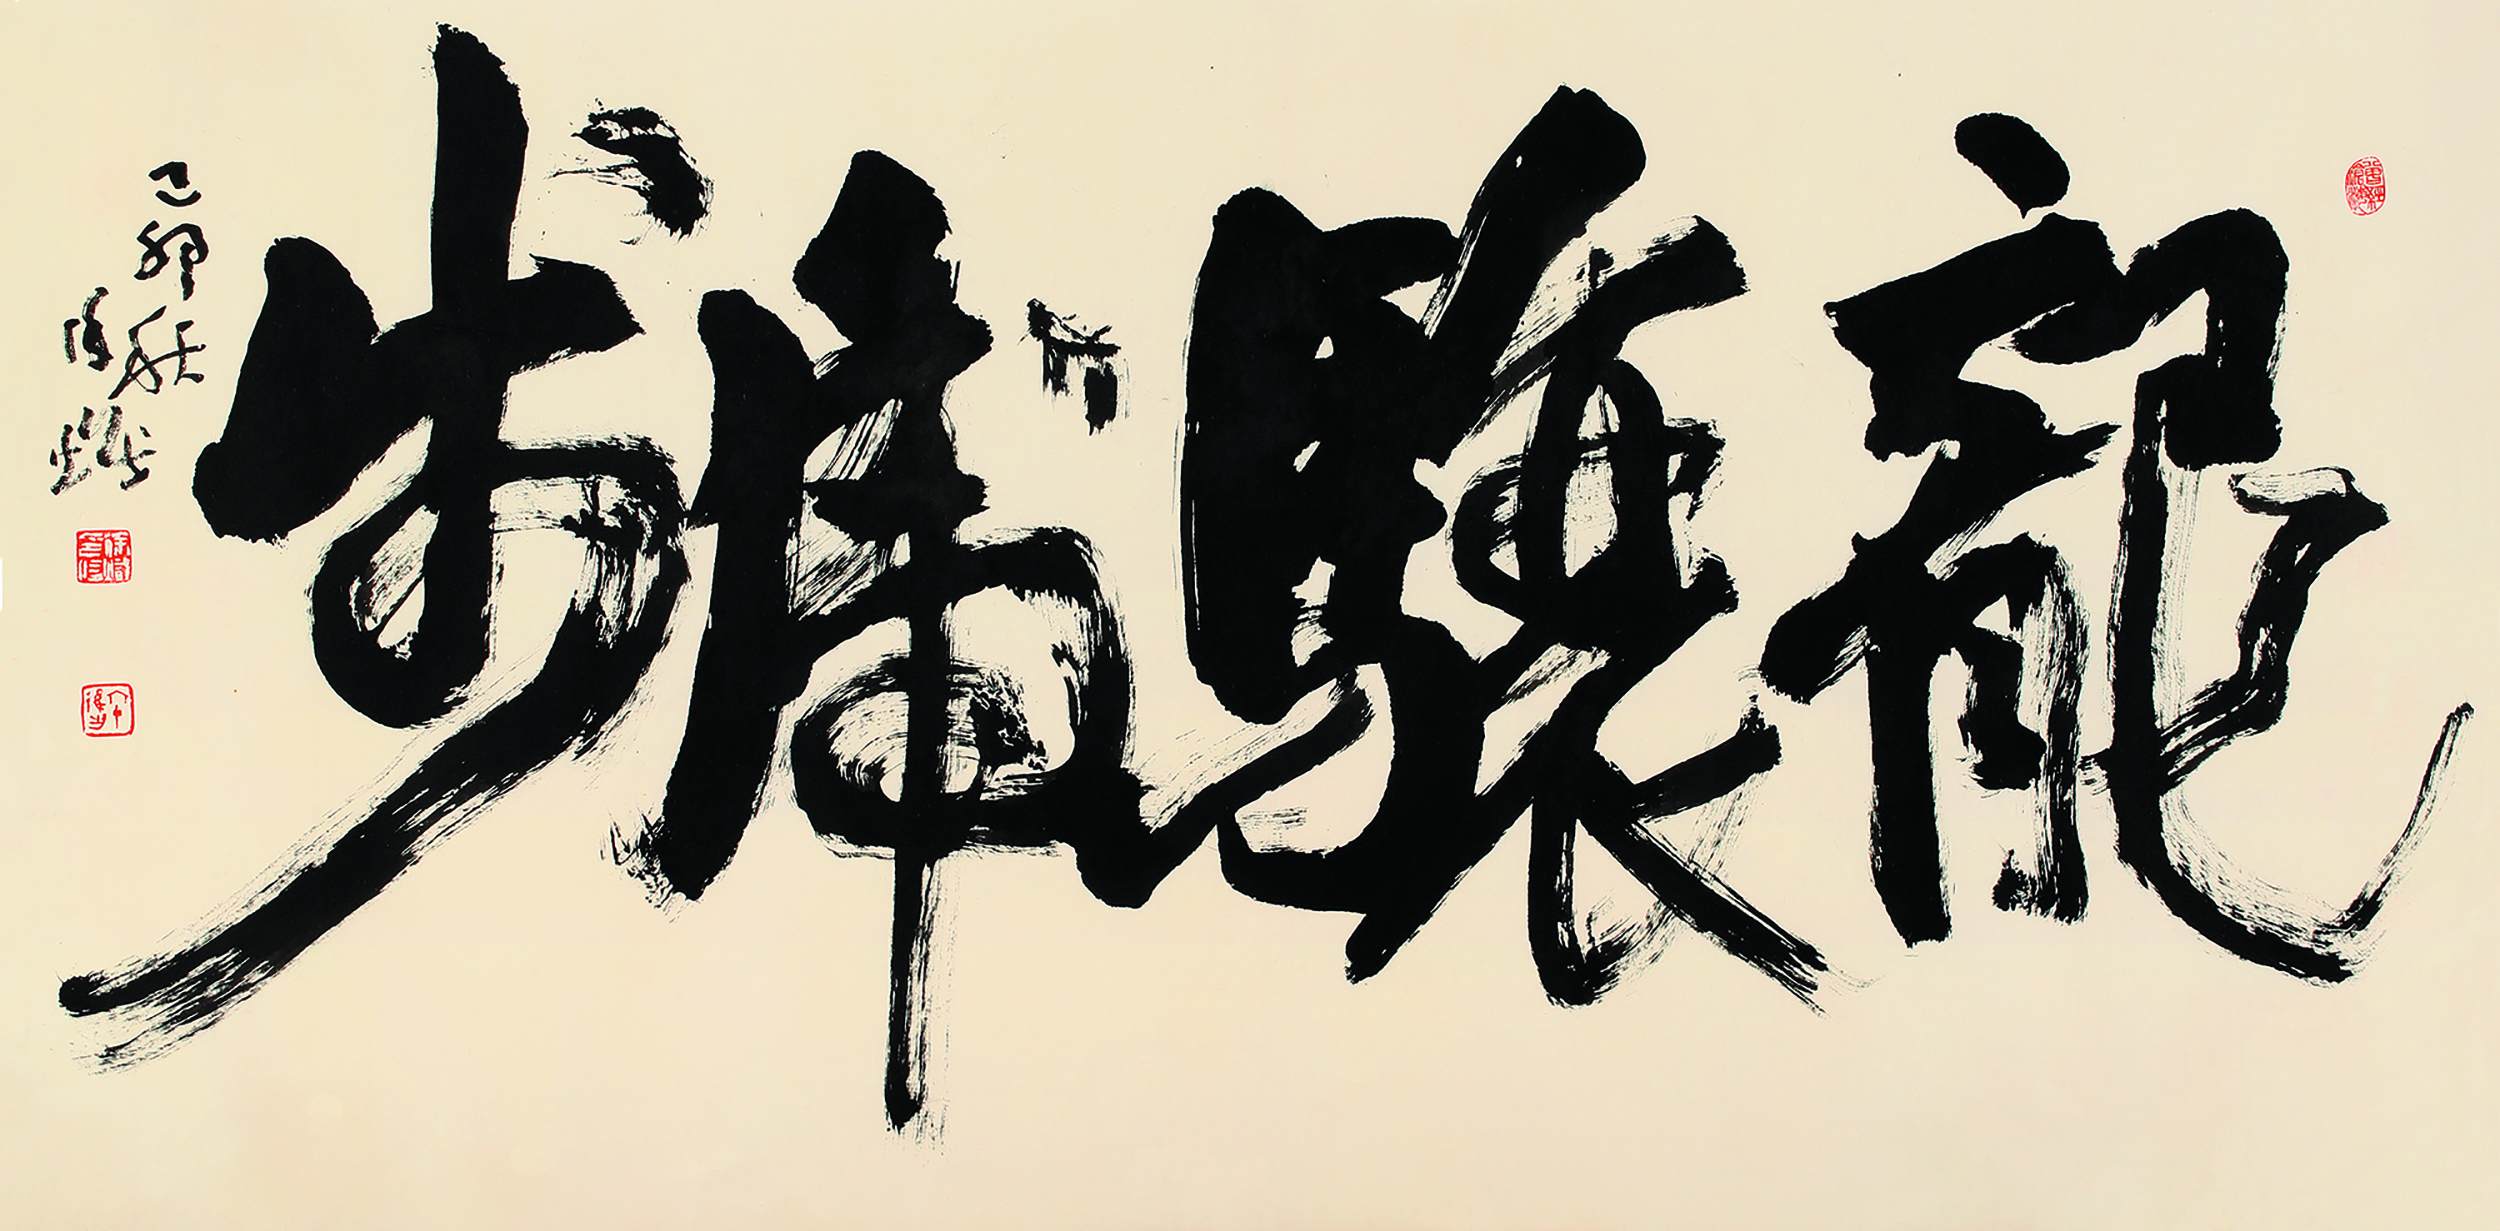 龍驤虎步
己卯秋月